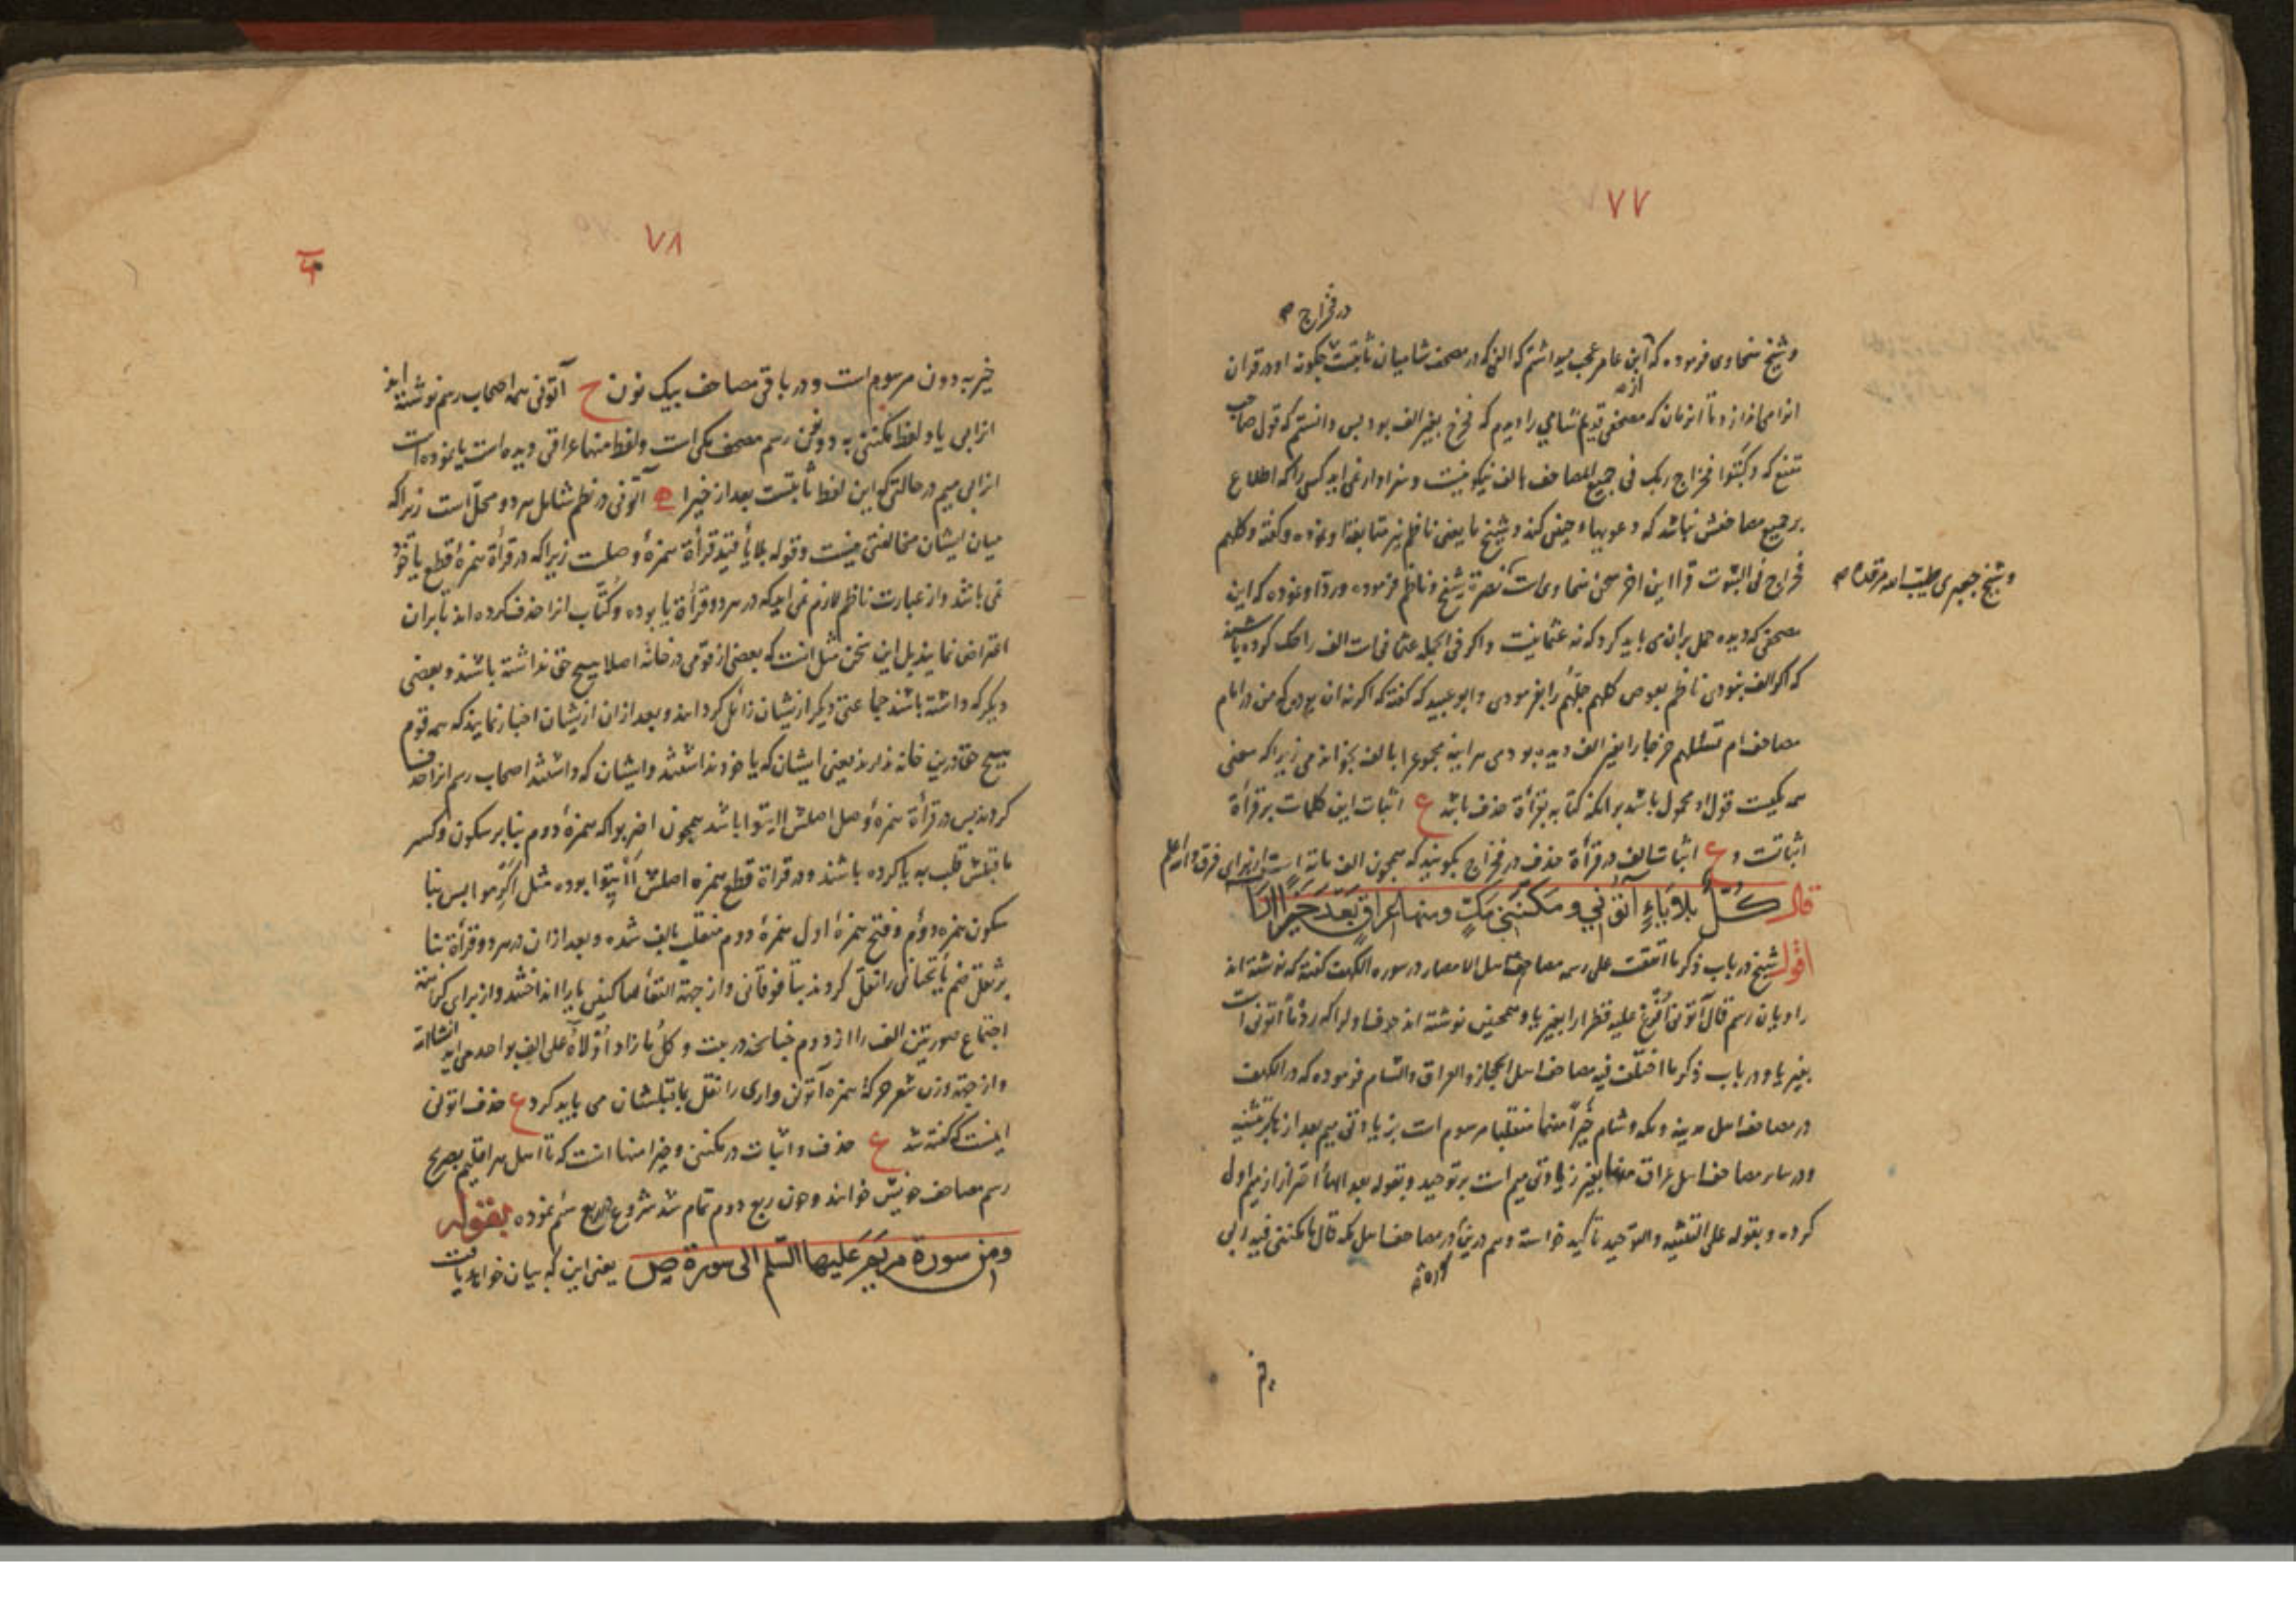 ٧٧
در فخراج
و شیخ سخاوی فرموده که ابن عامر عجب میداشتم که الفی که در مصحف شامیان ثابتست چگونه او در قران
انرا می اندازد تا انزمان که مصحفی قدیم شامی را دیدم که فخرج بغیر الف بود پس دانستم که قول صاحب
از
که و کتبوا فخراج ربک فی جمیع المصاحف بالف نیکو نیست و سزاوار نمی اید کسی را که اطلاع
بر جمیع مصاحفش نباشد که دعویهاء چنین کند و شیخ ما یعنی ناظم نیز متابعة او نموده و گفته و کلهم
فخراج فی الثبوت قرا این اخر سخن سخاوی است نصرة شیخ و ناظم فرموده و رد او نموده که این
و شیخ جعبری طیب الله مرقده
مصحفی که دیده حمل بران می باید کرد که نه عثمانیست و اگر فی الجمله عثمانی است الف را حک کرده باشند
که اگر الف نبودی ناظم بعوض کلهم جلهم را بفرمودی و ابو عبید که گفته که اگر نه ان بودی که من در امام
مصاحف ام تسئلهم خرجا را بغیر الف دیده بودمی هر اینه مجموع را بالف بخواندمی زیرا که معنی
همه یکیست قول او محمول باشد بر انکه کتابه بقرأة حذف باشد ع اثبات این کلمات بر قرأة
اثباتست و ع اثبات الف در قرأة حذف در فخراج بگویند که همچون الف مائة است از برای فرق والله اعلم
قال کل بلا یاء اتونی و مکننی مک و منها عراق بعد خیرا ارا
اقول شیخ در باب ذکر ما اتفقت علی رسمه مصاحف اهل الامصار در سوره الکهف گفته که نوشته اند
راویان رسم قال آتونی افرغ علیه قطرا را بغیر یا و همچنین نوشته اند حرف اول را که ردما آتونی است
بغیر یا و در باب ذکر ما اختلفت فیه مصاحف اهل الحجاز و العراق و الشام فرموده که در الکهف
در مصاحف اهل مدینه و مکه و شام خیرا منهما منقلبا مرسوم است بزیادتی میم بعد از ها بر تثنیه
و در سایر مصاحف اهل عراق منها بغیر زیادتی میم است بر توحید و بقوله بعد الهاء احتراز از میم اول
کرده و بقوله علی التثنیه و التوحید تاکید خواسته و هم درین در مصاحف اهل مکه قال ما مکننی فیه ربی
٧٨
خیر به دو نون مرسوم است و در باقی مصاحف بیک نون ح آتونی همه اصحاب رسم نوشته اند
انرا بی یا و لفظ مکننی به دو نون رسم مصحف مکی است و لفظ منها عراقی دیده است یا نموده است
انرا بی میم در حالتی که این لفظ ثابتست بعد از خیرا آتونی در نظم شامل هر دو محل است زیرا که
میان ایشان مخالفتی نیست و قوله بلا یا قید قرأة همزهٔ وصلست زیرا که در قرأة همزهٔ قطع یا خود
نمی باشد و از عبارت ناظم لازم نمی اید که در هر دو قرأة یا بوده و کتّاب انرا حذف کرده اند تا بران
اعتراض نمایند بل این سخن مثل انست که بعضی از قومی در خانه اصلا هیچ حق نداشته باشند و بعضی
دیگر که داشته باشند جماعتی دیگر ازیشان زائل گردانند و بعد ازان ازیشان اخبار نمایند که همه قوم
هیچ حق درین خانه ندارند یعنی ایشان که یا خود نداشتند و ایشان که داشتند اصحاب رسم انرا حذف
کردند پس در قرأة همزهٔ وصل اصلش ائیتوا باشد همچون اضربوا که همزهٔ دوم بنابر سکون و کسر
ما قبلش قلب به یا کرده باشند و در قرأة قطع همزه اصلش أأتیوا بوده مثل اکرموا پس بنا
سکون همزه دوم و فتح همزهٔ اول همزهٔ دوم منقلب بالف شده و بعد ازان در هر دو قرأة بنا
بر ثقل ضم یاء تحتانی را نقل کردند بتاء فوقانی و از جهة التقاء ساکنین یا را انداختند و از برای کراهت
اجتماع صورتین الف را از دوم چنانچه در بیت و کل ما زاد اولاه علی الف بواحد می اید انشاالله
و از جهة وزن شعر حرکهٔ همزه آتونی و اری را نقل بماقبلشان می باید کرد ع حذف اتونی
اینست که گفته شد ع حذف و اثبات در مکننی و خیرا منها انست که تا اهل هر اقلیم بصریح
رسم مصاحف خویش خوانند و چون ربع دوم تمام شد شروع در ربع سیم نموده بقوله
ومن سورة مریم علیها السلم الی سورة ص یعنی این که بیان خواهد یافت